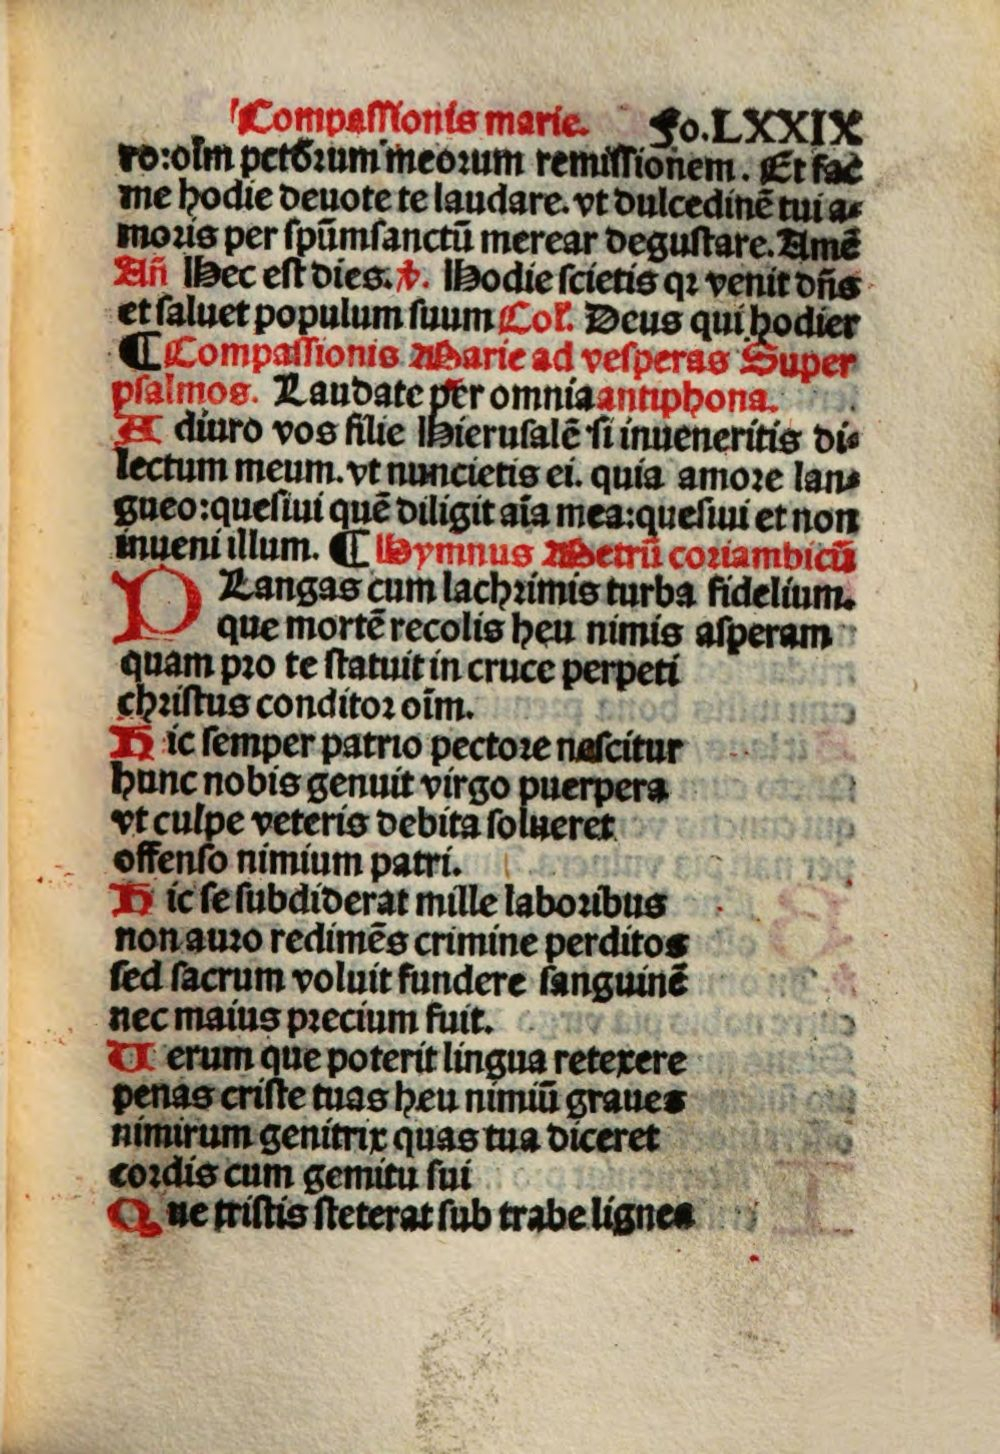 Compassionis marie. Fo.LXXIX
ro:oĩm pctõrum meorum remissionem. Et fac
me hodie deuote te laudare. vt dulcedinẽ tui a-
moris per spũmsanctũ merear degustare. Amẽ
Añ Hec est dies. ꝟ. Hodie scietis qꝛ venit dñs
et saluet populum suum Col'. Deus qui hodier
¶ Compassionis Marie ad vesperas Super
psalmos. Laudate per omnia antiphona.
A diuro vos filie Hierusalẽ si inueneritis di-
lectum meum. vt nuncietis ei. quia amore lan-
gueo:quesiui quẽ diligit aĩa mea:quesiui et non
inueni illum. ¶ Hymnus Metrũ coriambicũ
PLangas cum lachrimis turba fidelium.
que mortẽ recolis heu nimis asperam
quam pro te statuit in cruce perpeti
christus conditor oĩm.
H ic semper patrio pectore nascitur
hunc nobis genuit virgo puerpera
vt culpe veteris debita solueret
offenso nimium patri.
H ic se subdiderat mille laboribus
non auro redimẽs crimine perditos
sed sacrum voluit fundere sanguinẽ
nec maius precium fuit.
U erum que poterit lingua retexere
penas criste tuas heu nimiũ graues
nimirum genitrix quas tua diceret
cordis cum gemitu sui
Q ue tristis steterat sub trabe lignea